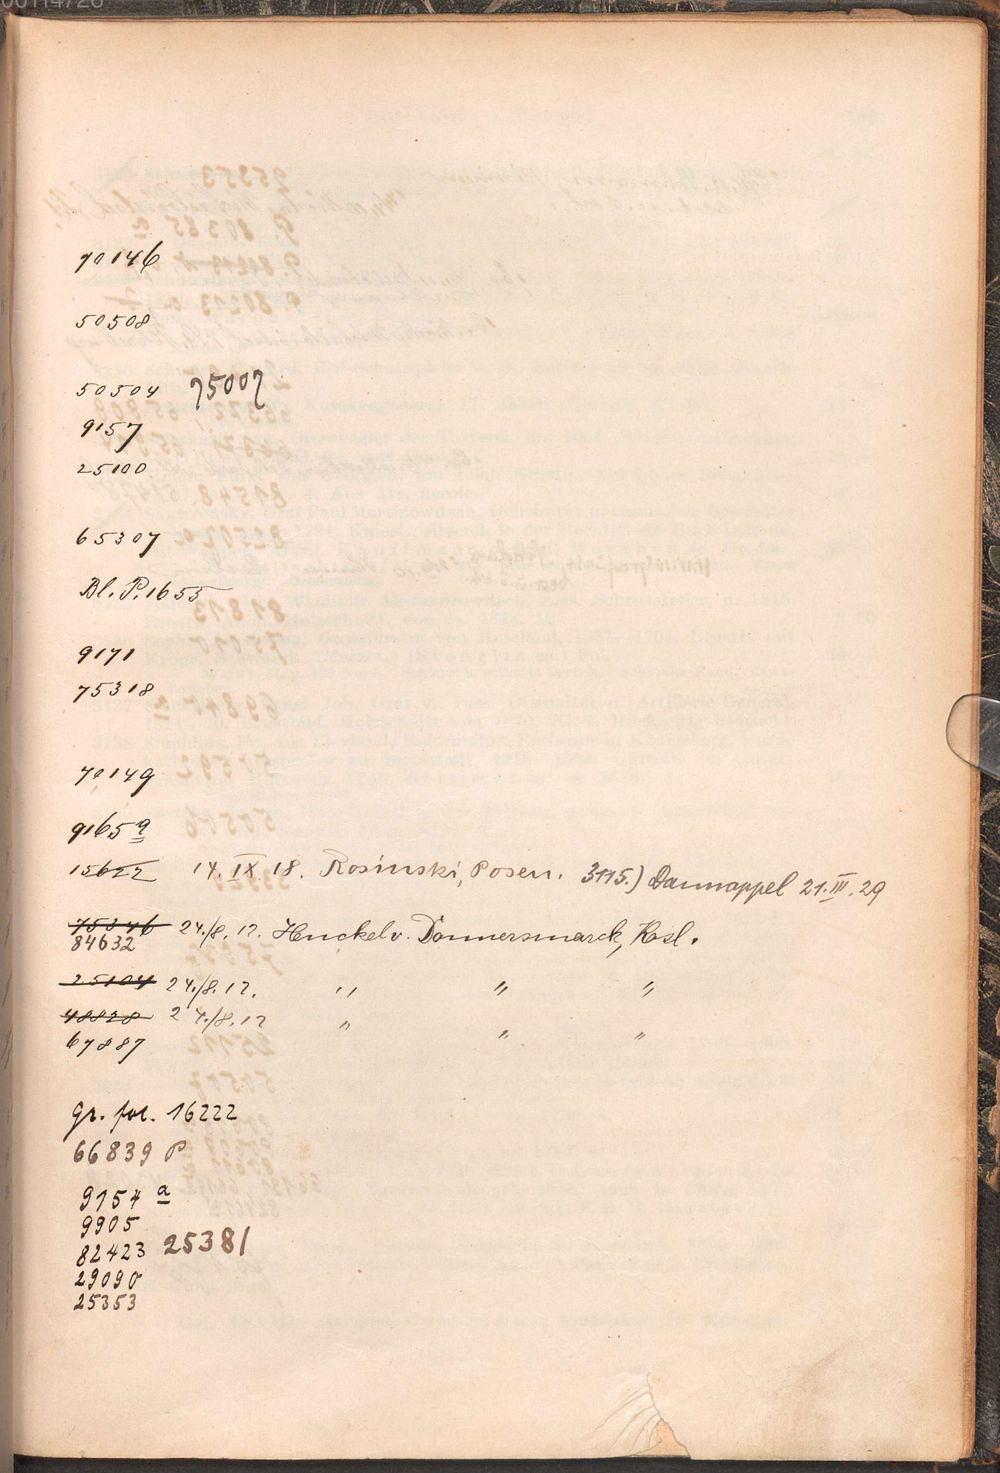 00114726
70146
50508
50504 75007
9157
25100
65307
Bl. P. 1655
9171
75318
70149
9165 a
15622 14. IX 18. Rosinski, Posen. 3115.) Dannappel 21. III. 29
75346 24./8. 17. Henckel v. Donnersmarck, Rosl.
84632
25104 24./8. 17. " " "
48828 24./8. 17 " " "
67887
gr. fol. 16222
66839 P
9154 a
9905
82423 25381
29090
25353